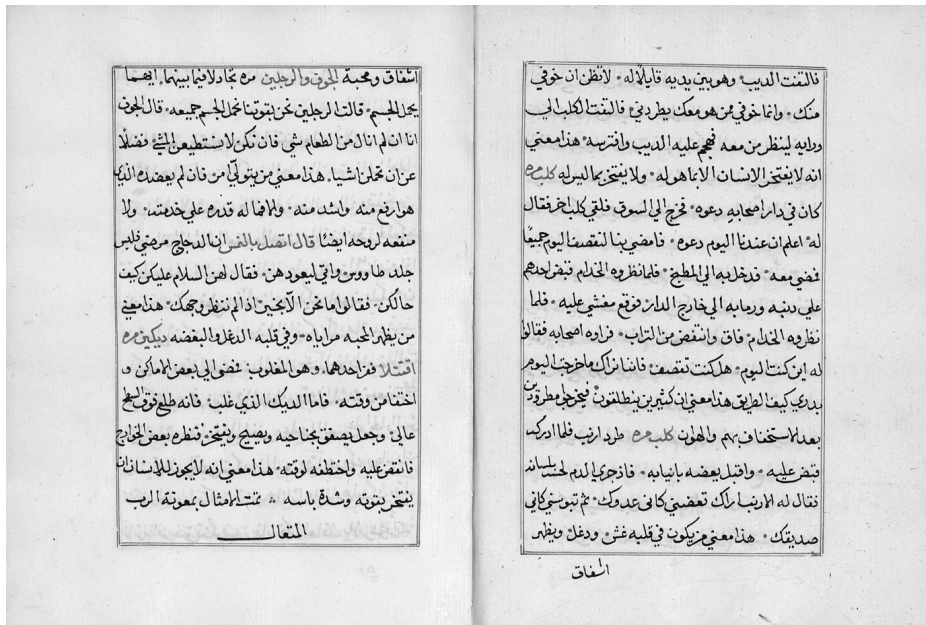 فالتفت الديب وهو بين يديه قايلًا له لا تظن ان خوفي
منك وانما خوفي ممن هو معك يطردني فالتفت الكلب الي
ورايه لينظر من معه فهجم عليه الديب وافترسه هذا معني
انه لا يفتخر الانسان الا بما هو له ولا يفتخر بما ليس له كلب مره
كان في دار اصحابه دعوه فخرج الي السوق فلقي كلب اخر فقال
له اعلم ان عندنا اليوم دعوه فامضي بنا لنقصف اليوم جميعًا
فمضي معه فدخل به الي المطبخ فلما نظروه الخدام قبض احدهم
علي دنبه ورما به الي خارج الدار فوقع مغشي عليه فلما
نظروه الخدام فاق وانتفض من التراب فراوه اصحابه فقالوا
له اين كنت اليوم هل كنت تقصف فاننا نراك ما خرجت اليوم
بدري كيف الطريق هذا معني ان كثيرين يتطلفون فيخرجوا مطرودين
بعد الاستخفاف بهم والهوان كلب مره طرد ارنب فلما ادركه
قبض عليه واقبل يعضه بانيابه فاذ جري الدم لحسه بلسانه
فقال له الارنب اراك تعضني كاني عدوك ثم تبوسني كاني
صديقك هذا معني من يكون في قلبه غش ودغل ويظهر
اشفاق
اشفاق ومحبة الجوف والرجلين مره تجادلا فيما بينهما ايهما
يحمل الجسم قالت الرجلين نحن بقوتنا نحمل الجسم جميعه قال الجوف
انا ان لم انال من الطعام شي فان تكن لا تستطيعن المشي فضلًا
عن ان تحملن اشيا هذا معني من يتولي امر فان لم يعضده الذي
هو ارفع منه واشد منه والا فما له قدره علي خدمته ولا
منفعه لروحه ايضًا قال اتصل بالنمس ان الدجاج مرضي فلبس
جلد طاووس واتي ليعودهن فقال لهن السلام عليكن كيف
حالكن فقالوا ما نحن الا بخير اذا لم ننظر وجهك هذا معني
من يظهر المحبه مراياه وفي قلبه الدغل والبغضه ديكين مره
اقتتلا ففر احدهما وهو المغلوب فمضي الي بعض الاماكن و
اختفا من وقته فاما الديك الذي غلب فانه طلع فوق السطح
عالي وجعل يصفق بجناحيه ويصيح ويفتخر فنظره بعض الجوارح
فانقض عليه واختطفه لوقته هذا معني انه لا يجوز للانسان ان
يفتخر بقوته وشدة باسه تمت الامثال بمعونة الرب
المتعال